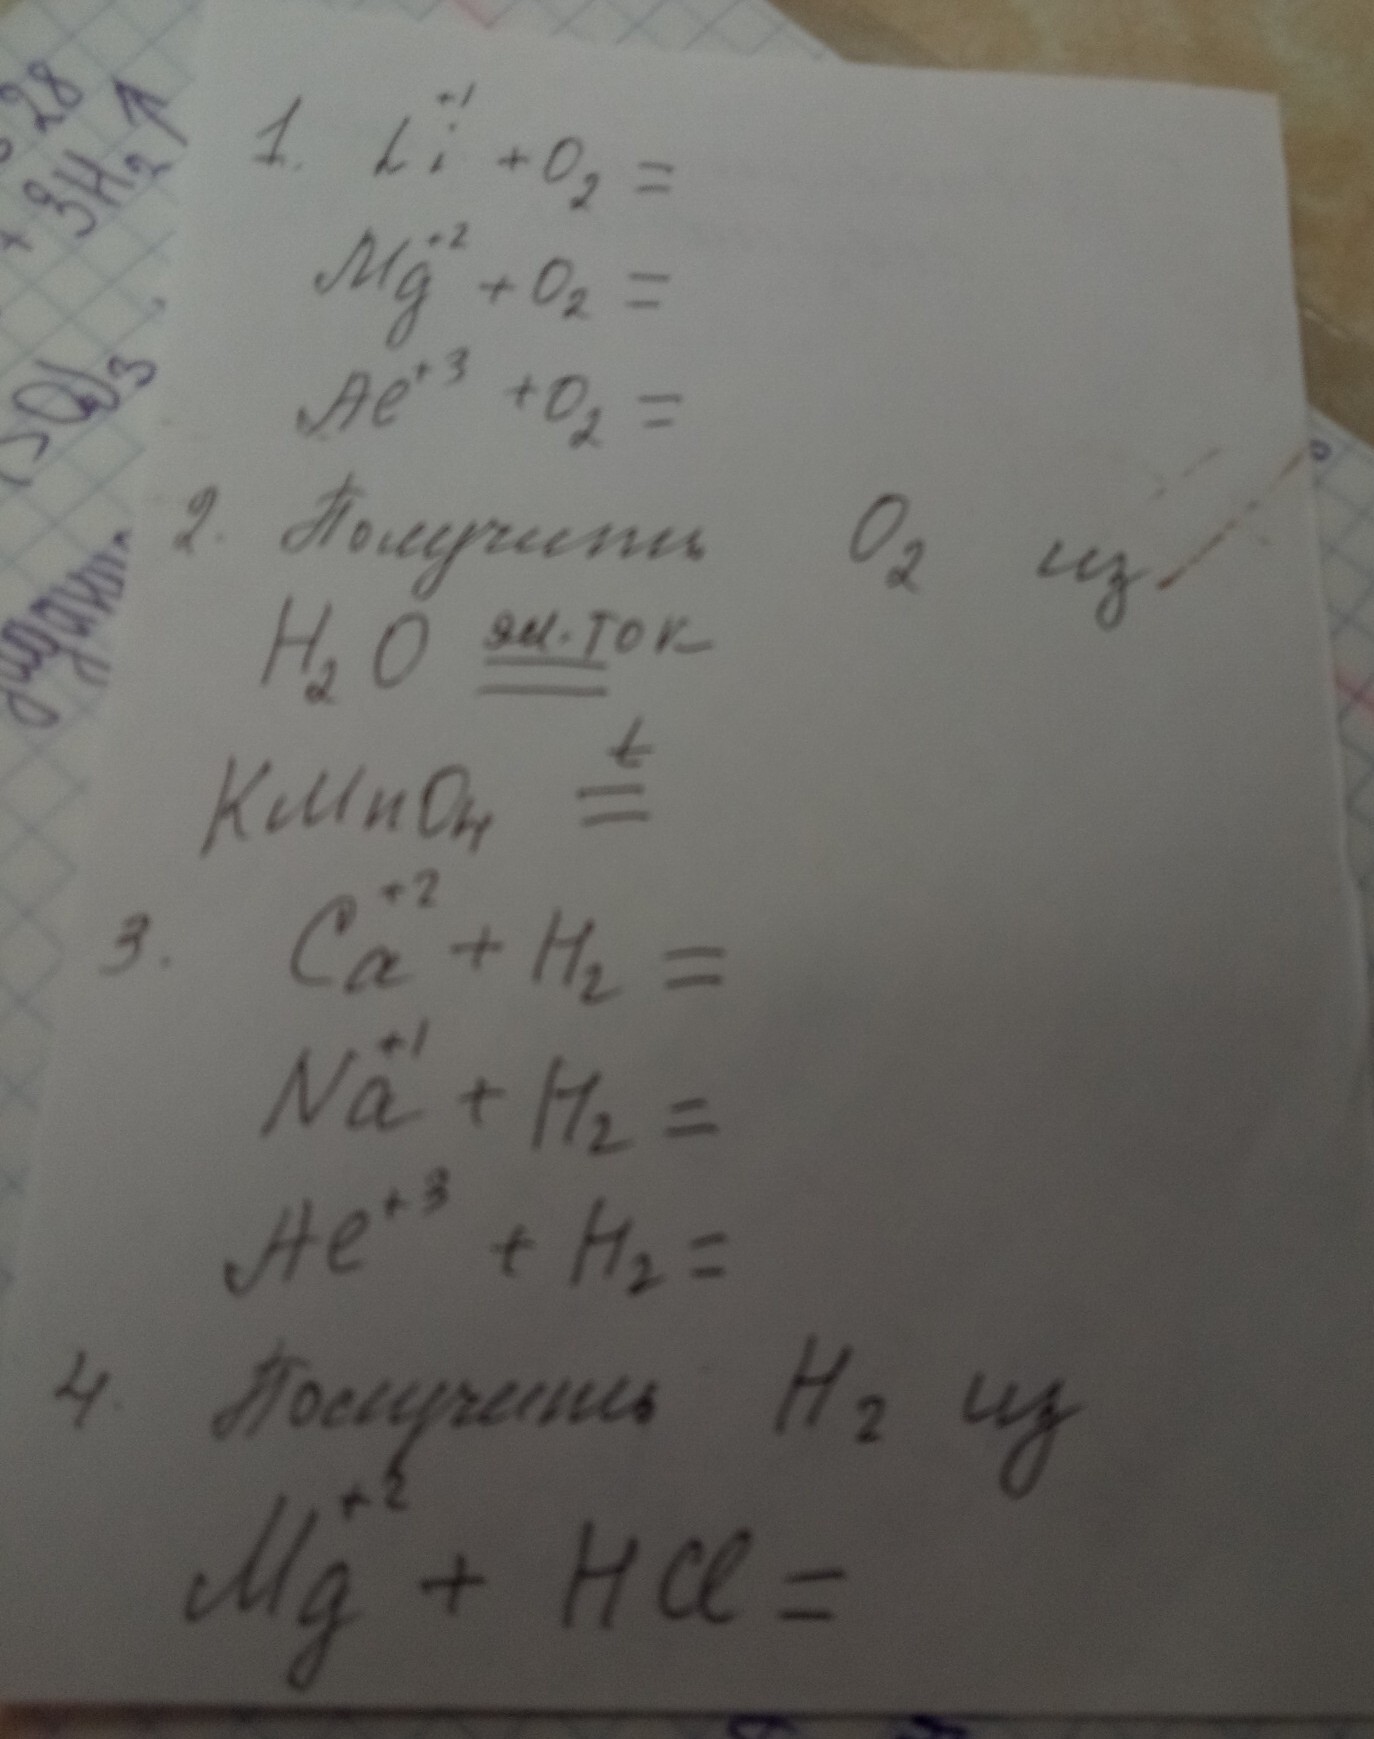 28
+ 3H₂↑
SO₄)₃
1. Li⁺¹ + O₂ =
Mg⁺² + O₂ =
Al⁺³ + O₂ =
2. Получить O₂ из
H₂O эл. ток =
KMnO₄ t =
3. Ca⁺² + H₂ =
Na⁺¹ + H₂ =
Al⁺³ + H₂ =
4. Получить H₂ из
Mg⁺² + HCl =